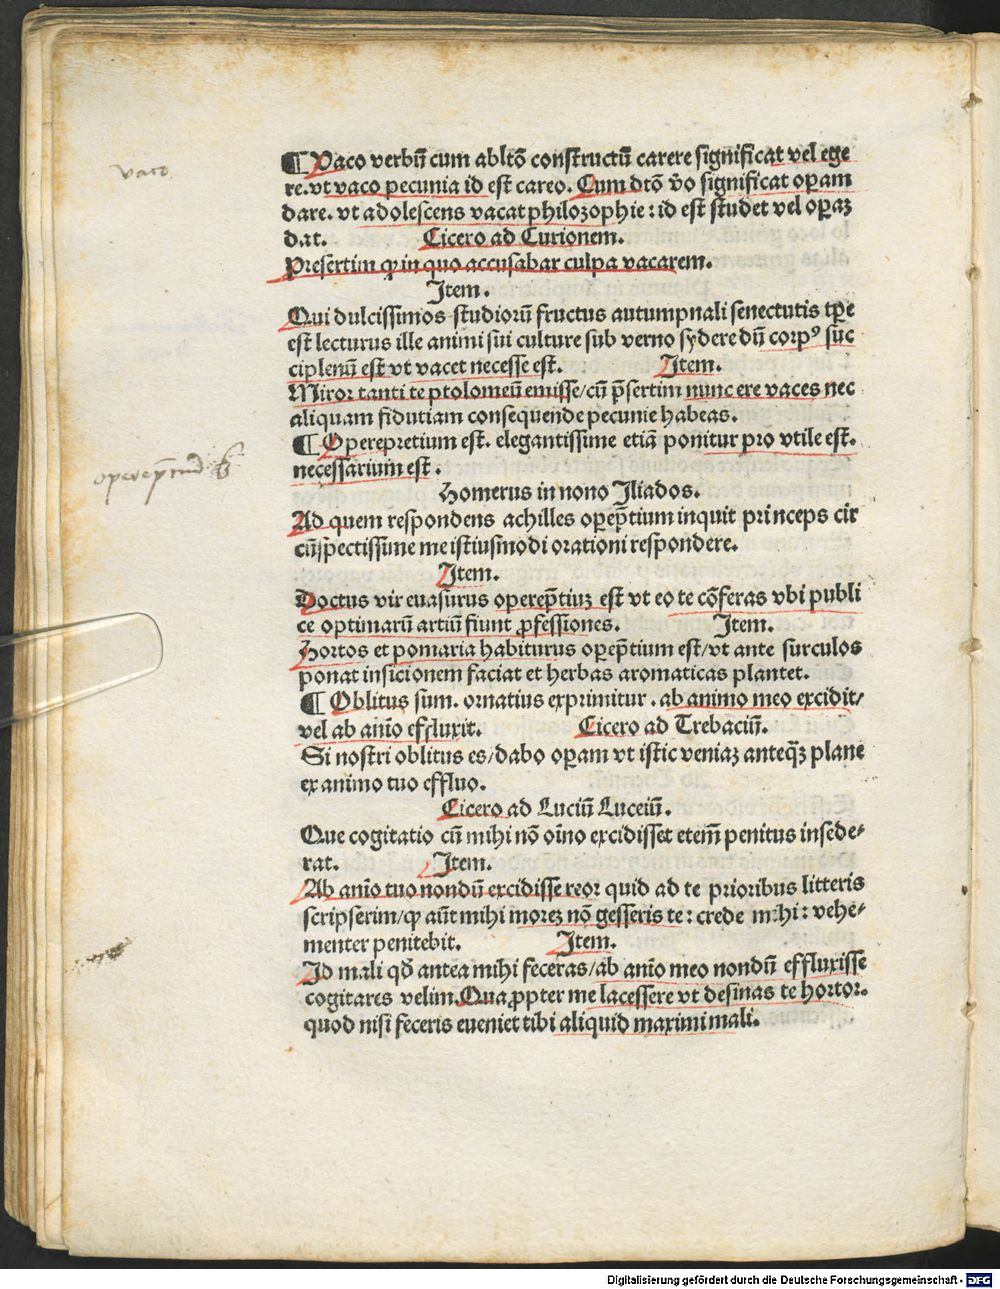 vaco
¶ Vaco verbū cum abltō constructū carere significat vel ege
re. vt vaco pecunia id est careo. Cum dtō v̄o significat operam
dare. vt adolescens vacat philozophie: id est studet vel operaꝫ
dat. Cicero ad Curionem.
Presertim ꝙ in quo accusabar culpa vacarem.
Item.
Qui dulcissimos studiorū fructus autumpnali senectutis tp̄e
est lecturus ille animi sui culture sub verno sydere dū corpꝰ suc
ciplenū est vt vacet necesse est. Item.
Miror tanti te ptolomeū emisse/cū p̄sertim nunc ere vaces nec
aliquam fidutiam consequende pecunie habeas.
¶ Operepretium est. elegantissime etiā ponitur pro vtile est.
necessarium est.
Homerus in nono Iliados.
Ad quem respondens achilles oꝑep̄tium inquit princeps cir
cūspectissime me istiusmodi orationi respondere.
Item.
Doctus vir euasurus operep̄tiuꝫ est vt eo te cōferas vbi publi
ce optimarū artiū fiunt ꝓfessiones. Item.
Hortos et pomaria habiturus oꝑep̄tium est/vt ante surculos
ponat insicionem faciat et herbas aromaticas plantet.
¶ Oblitus sum. ornatius exprimitur. ab animo meo excidit/
vel ab anīo effluxit. Cicero ad Trebaciū.
Si nostri oblitus es/dabo oꝑam vt istic veniaꝫ anteq̄ꝫ plane
ex animo tuo effluo.
Cicero ad Luciū Luceiū.
Que cogitatio cū mihi nō oīno excidisset etem̄ penitus insede⸗
rat. Item.
Ab anīo tuo nondū excidisse reor quid ad te prioribus litteris
scripserim/ꝙ aūt mihi moreꝫ nō gesseris te: crede mihi: vehe⸗
menter penitebit. Item.
Id mali qd̄ antea mihi feceras/ab anīo meo nondū effluxisse
cogitares velim. Quaꝓpter me lacessere vt desinas te hortor.
quod nisi feceris eueniet tibi aliquid maximi mali.